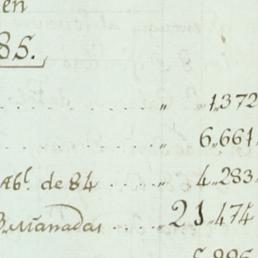 en
85.
........ „ 1,372
........ „ 6,661„
Abl. de 84 .... „ 4„283„
Mañadas ....... „ 21„474„